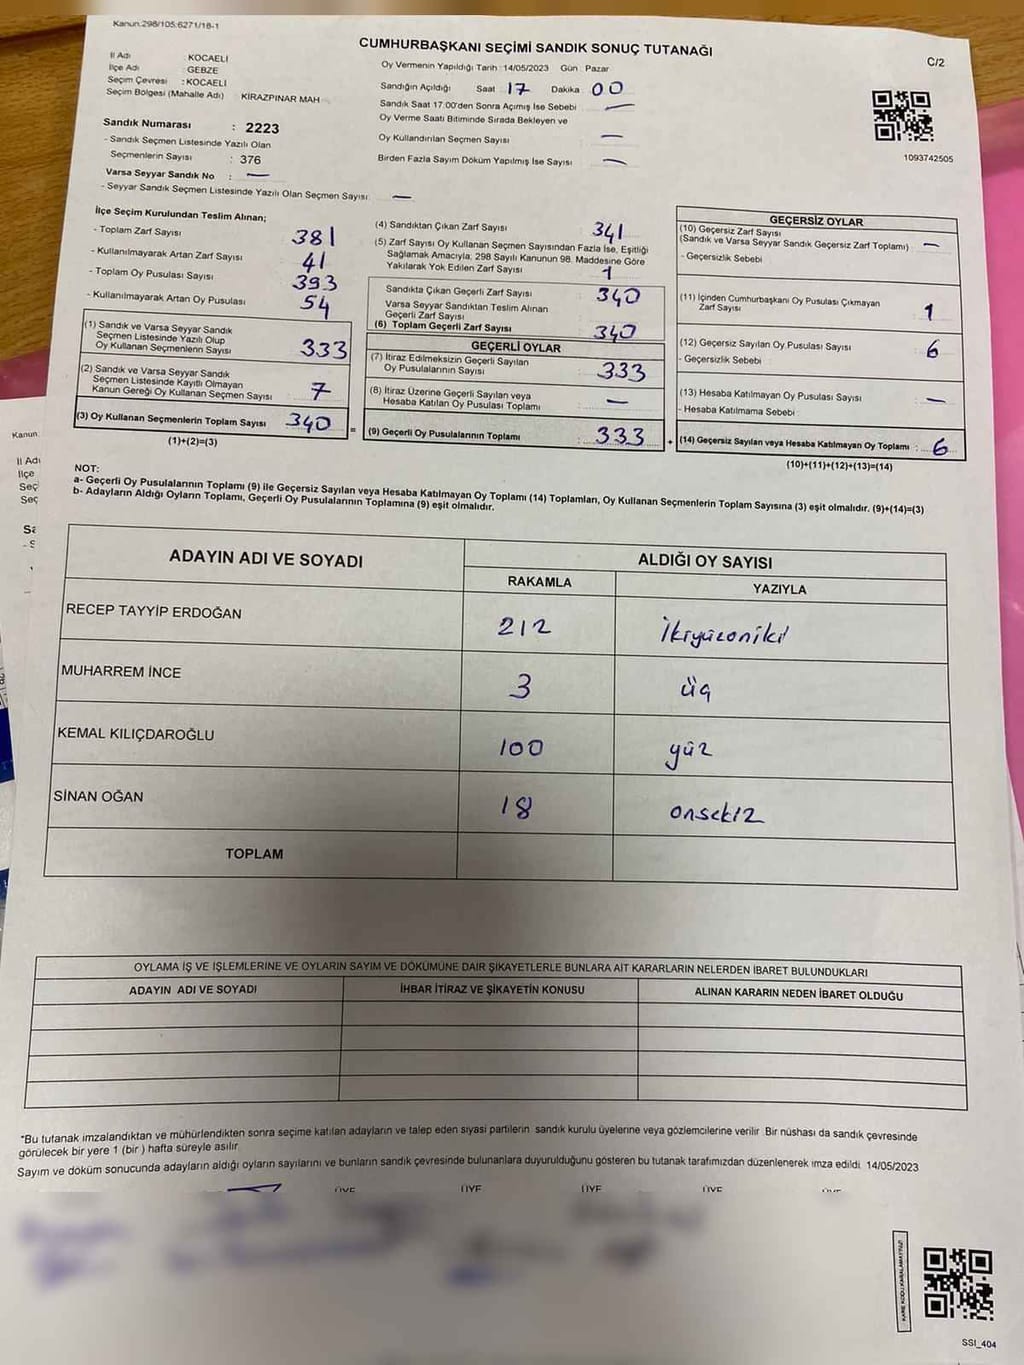 Kanun:298/105:6271/18-1
CUMHURBAŞKANI SEÇİMİ SANDIK SONUÇ TUTANAĞI
C/2
İl Adı : KOCAELİ
İlçe Adı : GEBZE
Seçim Çevresi : KOCAELİ
Seçim Bölgesi (Mahalle Adı) : KİRAZPINAR MAH
Sandık Numarası : 2223
- Sandık Seçmen Listesinde Yazılı Olan
Seçmenlerin Sayısı : 376
Varsa Seyyar Sandık No : —
- Seyyar Sandık Seçmen Listesinde Yazılı Olan Seçmen Sayısı: —
Oy Vermenin Yapıldığı Tarih : 14/05/2023 Gün : Pazar
Sandığın Açıldığı Saat 17 Dakika 00
Sandık Saat 17:00'den Sonra Açımış İse Sebebi —
Oy Verme Saati Bitiminde Sırada Bekleyen ve
Oy Kullandırılan Seçmen Sayısı —
Birden Fazla Sayım Döküm Yapılmış İse Sayısı —
1093742505
İlçe Seçim Kurulundan Teslim Alınan;
- Toplam Zarf Sayısı 381
- Kullanılmayarak Artan Zarf Sayısı 41
- Toplam Oy Pusulası Sayısı 393
- Kullanılmayarak Artan Oy Pusulası 54
(1) Sandık ve Varsa Seyyar Sandık
Seçmen Listesinde Yazılı Olup
Oy Kullanan Seçmenlerin Sayısı 333
(2) Sandık ve Varsa Seyyar Sandık
Seçmen Listesinde Kayıtlı Olmayan
Kanun Gereği Oy Kullanan Seçmen Sayısı 7
(3) Oy Kullanan Seçmenlerin Toplam Sayısı 340 =
(1)+(2)=(3)
(4) Sandıktan Çıkan Zarf Sayısı 341
(5) Zarf Sayısı Oy Kullanan Seçmen Sayısından Fazla İse, Eşitliği
Sağlamak Amacıyla; 298 Sayılı Kanunun 98. Maddesine Göre
Yakılarak Yok Edilen Zarf Sayısı 1
Sandıkta Çıkan Geçerli Zarf Sayısı 340
Varsa Seyyar Sandıktan Teslim Alınan
Geçerli Zarf Sayısı
(6) Toplam Geçerli Zarf Sayısı 340
GEÇERLİ OYLAR
(7) İtiraz Edilmeksizin Geçerli Sayılan
Oy Pusulalarının Sayısı 333
(8) İtiraz Üzerine Geçerli Sayılan veya
Hesaba Katılan Oy Pusulası Toplamı —
(9) Geçerli Oy Pusulalarının Toplamı : 333 +
GEÇERSİZ OYLAR
(10) Geçersiz Zarf Sayısı
(Sandık ve Varsa Seyyar Sandık Geçersiz Zarf Toplamı) : —
- Geçersizlik Sebebi :
(11) İçinden Cumhurbaşkanı Oy Pusulası Çıkmayan
Zarf Sayısı 1
(12) Geçersiz Sayılan Oy Pusulası Sayısı : 6
- Geçersizlik Sebebi :
(13) Hesaba Katılmayan Oy Pusulası Sayısı : —
- Hesaba Katılmama Sebebi :
(14) Geçersiz Sayılan veya Hesaba Katılmayan Oy Toplamı : 6
(10)+(11)+(12)+(13)=(14)
NOT:
a- Geçerli Oy Pusulalarının Toplamı (9) ile Geçersiz Sayılan veya Hesaba Katılmayan Oy Toplamı (14) Toplamları, Oy Kullanan Seçmenlerin Toplam Sayısına (3) eşit olmalıdır. (9)+(14)=(3)
b- Adayların Aldığı Oyların Toplamı, Geçerli Oy Pusulalarının Toplamına (9) eşit olmalıdır.
ADAYIN ADI VE SOYADI
ALDIĞI OY SAYISI
RAKAMLA YAZIYLA
RECEP TAYYİP ERDOĞAN 212 İkiyüzoniki
MUHARREM İNCE 3 üç
KEMAL KILIÇDAROĞLU 100 yüz
SİNAN OĞAN 18 onsekiz
TOPLAM
OYLAMA İŞ VE İŞLEMLERİNE VE OYLARIN SAYIM VE DÖKÜMÜNE DAİR ŞİKAYETLERLE BUNLARA AİT KARARLARIN NELERDEN İBARET BULUNDUKLARI
ADAYIN ADI VE SOYADI İHBAR İTİRAZ VE ŞİKAYETİN KONUSU ALINAN KARARIN NEDEN İBARET OLDUĞU
*Bu tutanak imzalandıktan ve mühürlendikten sonra seçime katılan adayların ve talep eden siyasi partilerin sandık kurulu üyelerine veya gözlemcilerine verilir. Bir nüshası da sandık çevresinde
görülecek bir yere 1 (bir ) hafta süreyle asılır.
Sayım ve döküm sonucunda adayların aldığı oyların sayılarını ve bunların sandık çevresinde bulunanlara duyurulduğunu gösteren bu tutanak tarafımızdan düzenlenerek imza edildi. 14/05/2023
ÜYE ÜYE ÜYE ÜYE
KARE KODU KARALAMAYINIZ!
SSI_404